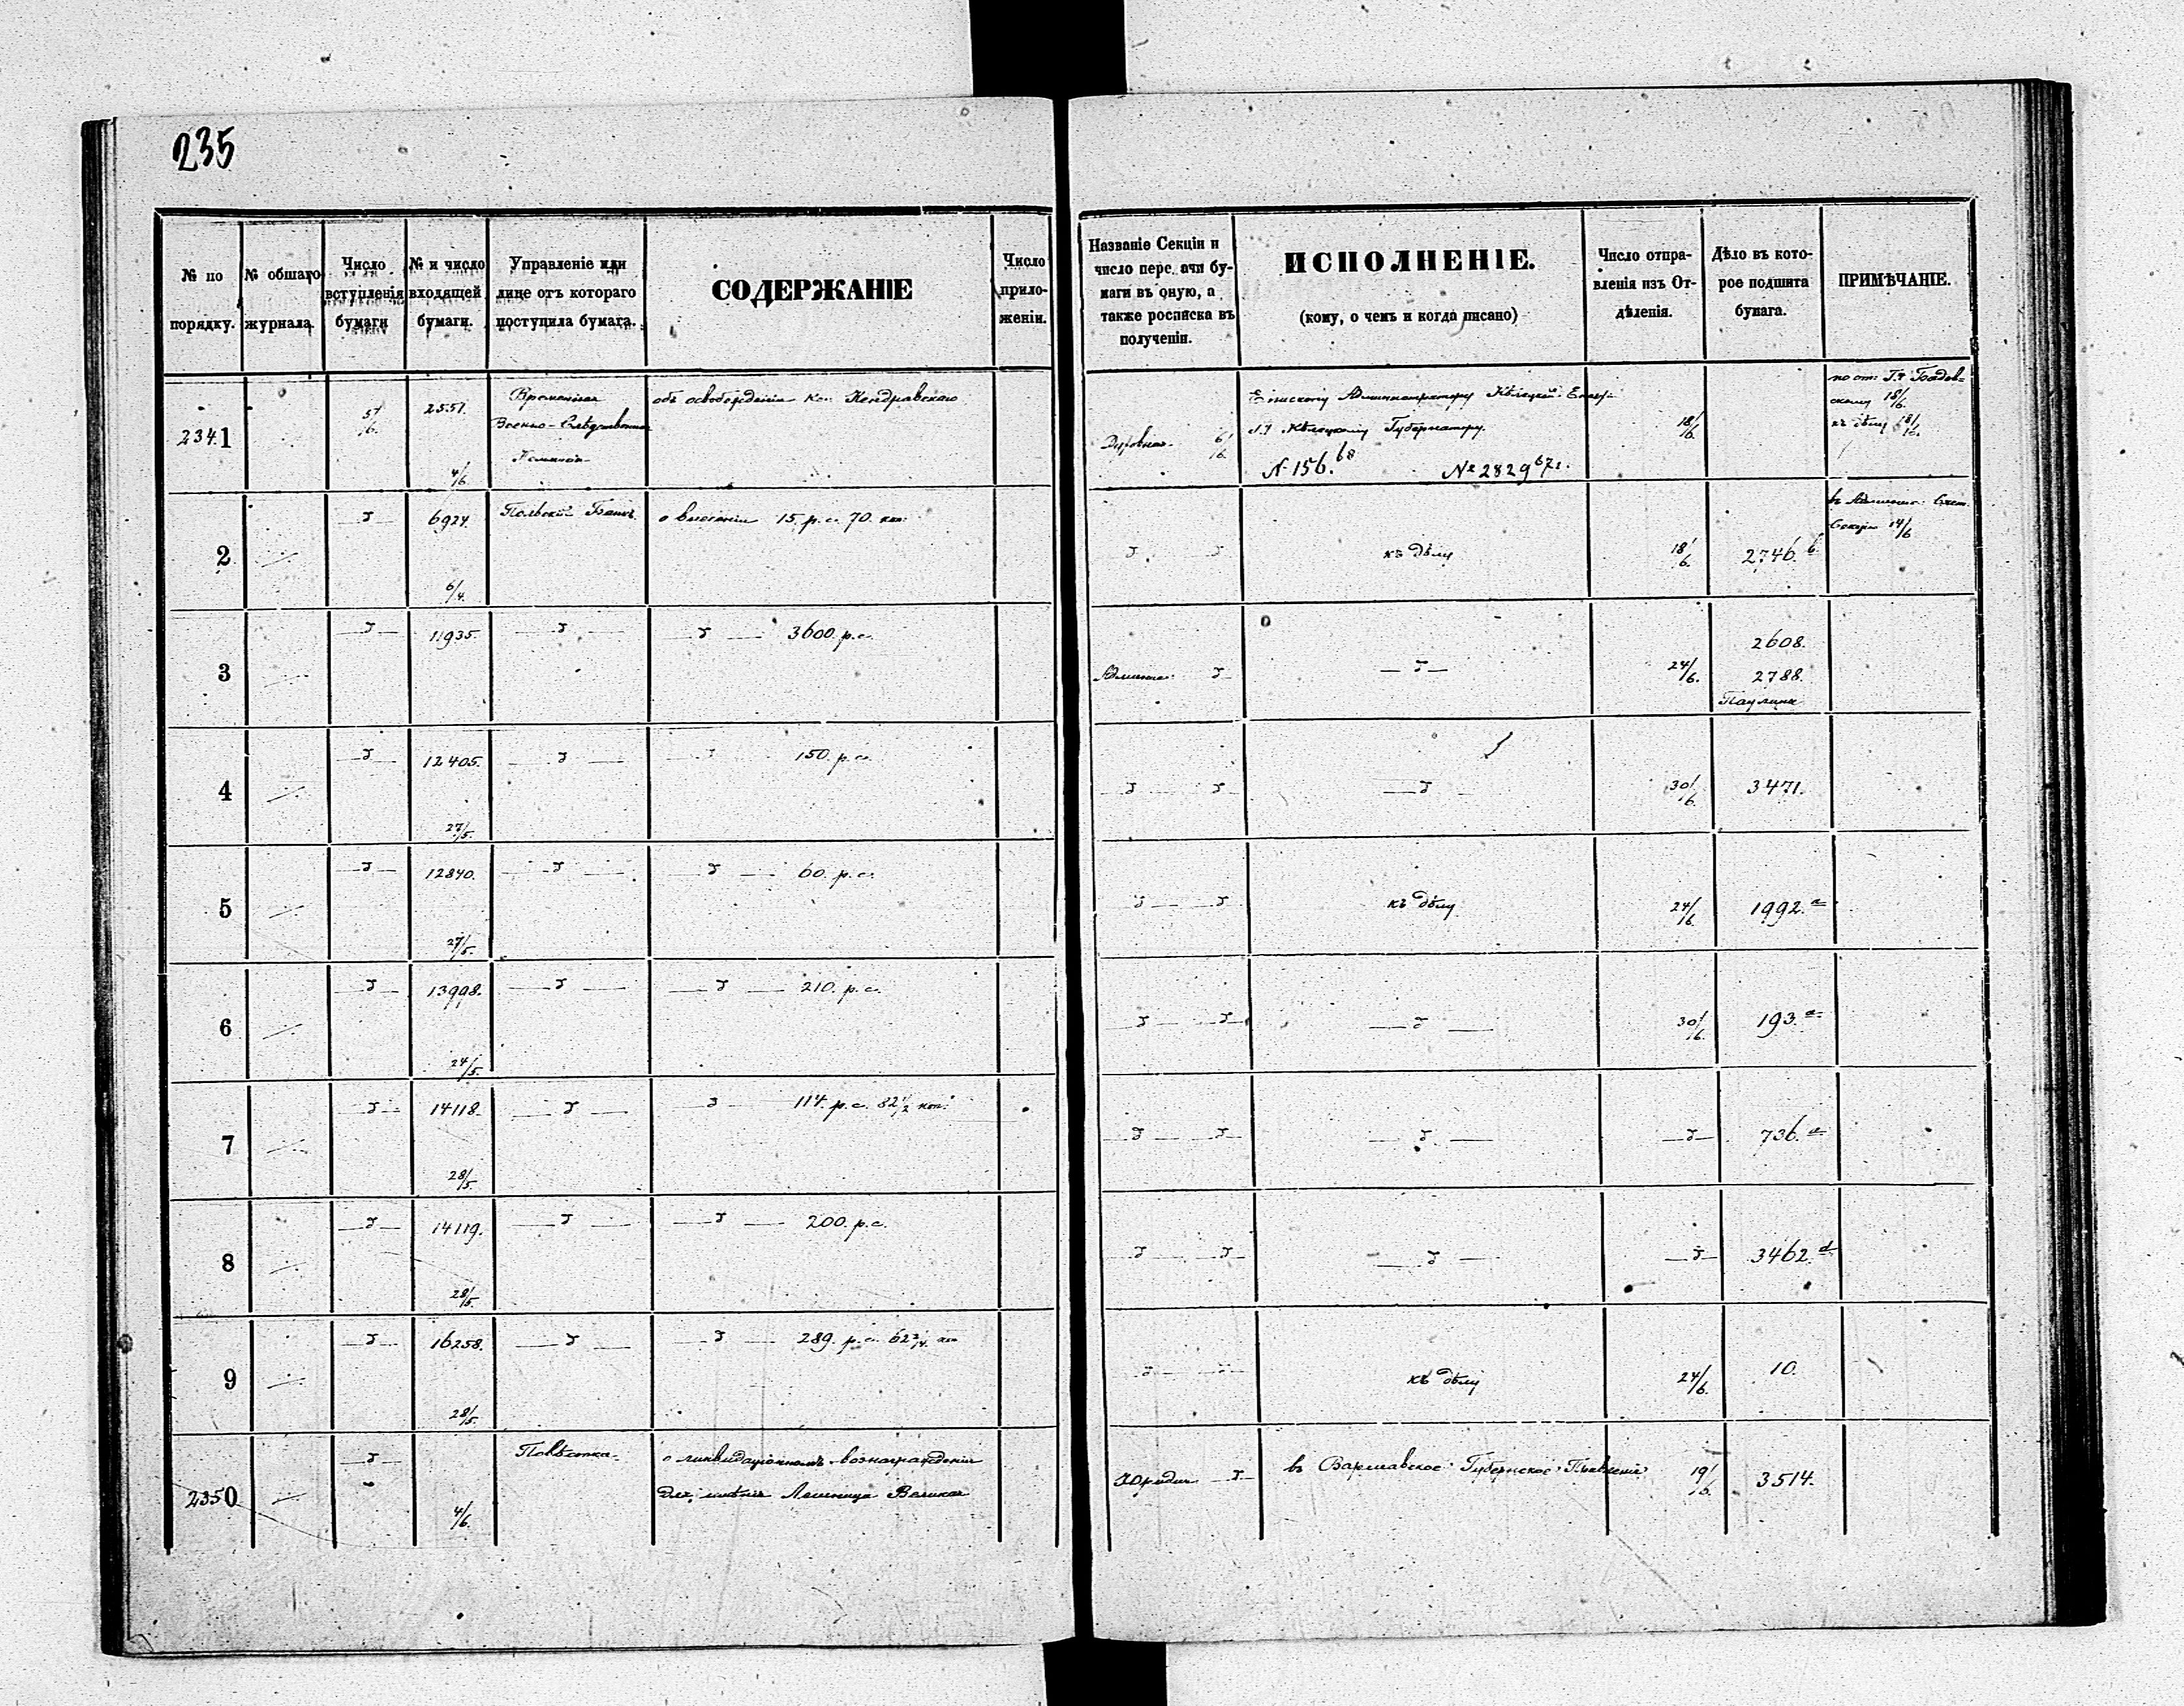 235
№ по порядку.
№ общаго журнала.
Число вступленія бумаги
№ и число входящей бумаги.
Управленіе или лице отъ котораго поступила бумага.
СОДЕРЖАНІЕ
Число прило-женіи.
Названіе Секціи и число передачи бу-маги въ оную, а также росписка въ полученіи.
ИСПОЛНЕНІЕ.
(кому, о чемъ и когда писано)
Число отпра-вленія изъ От-дѣленія.
Дѣло въ кото-рое подшита бумага.
ПРИМѢЧАНІЕ.
2341 5/6 2551. 4/6
Временная
Военно-Слѣдственная
об освобожденіи Кс.
Духовная 6/6
Администратору
Кѣлецкому Губернатору.
N 156.68 № 2829 671.
18/6
18/6
къ дѣлу 18/6
2 6924. 6/4. Польскій Банкъ. о внесеніи 15. р. с. 70. коп.
къ дѣлу 18/6. 2746. б
Секціи 14/6
3 11935. 3600. р. с.
24/6. 2608.
2788.
4 12405. 27/5. 150. р. с.
30/6. 3471.
5 12840. 27/5. 60. р. с.
къ дѣлу 24/6. 1992. а
6 13998. 24/5. 210. р. с.
30/6. 193. а
7 14118. 28/5. 114. р. с. 82 1/2 коп.
736. а
8 14119. 28/5. 200. р. с.
3462. d
9 16258. 28/5. 289. р. с. 62 3/4
къ дѣлу 24/6. 10.
2350 4/6 Повѣстка о ликвидаціонномъ вознагражденіи
для имѣнія Великая
Юридич. въ Варшавское Губернское Правленіе 19/6. 3514.